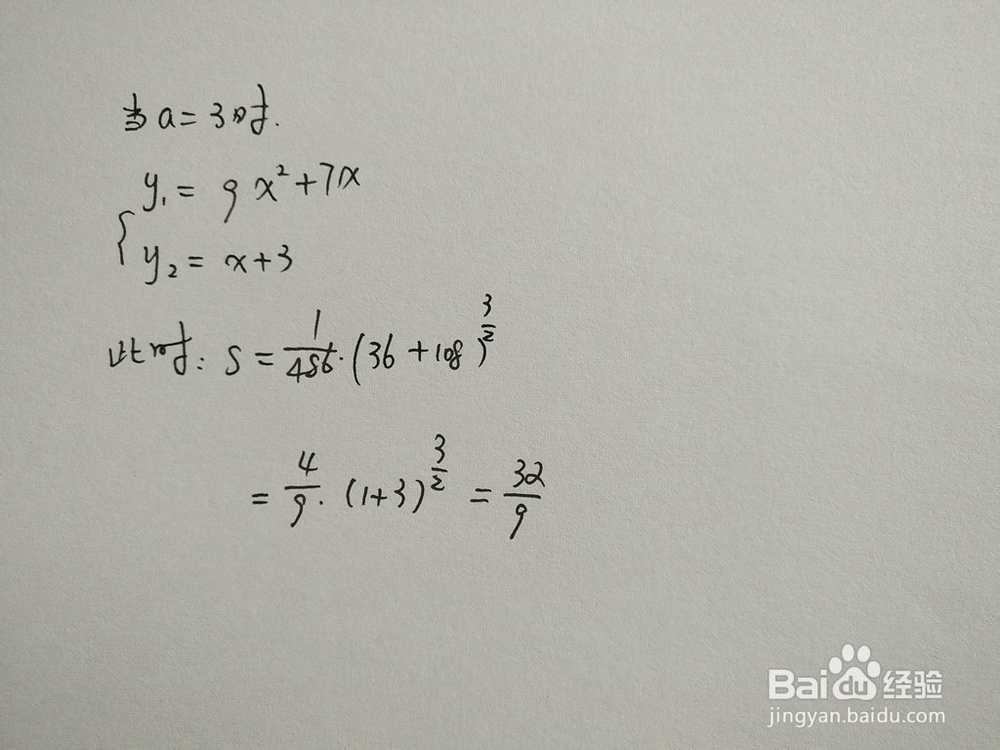 当a=3时.
y₁= 9x²+7x
y₂= x+3
此时: S = 1/486·(36+108)^(3/2)
= 4/9·(1+3)^(3/2) = 32/9
Baidu经验
jingyan.baidu.com